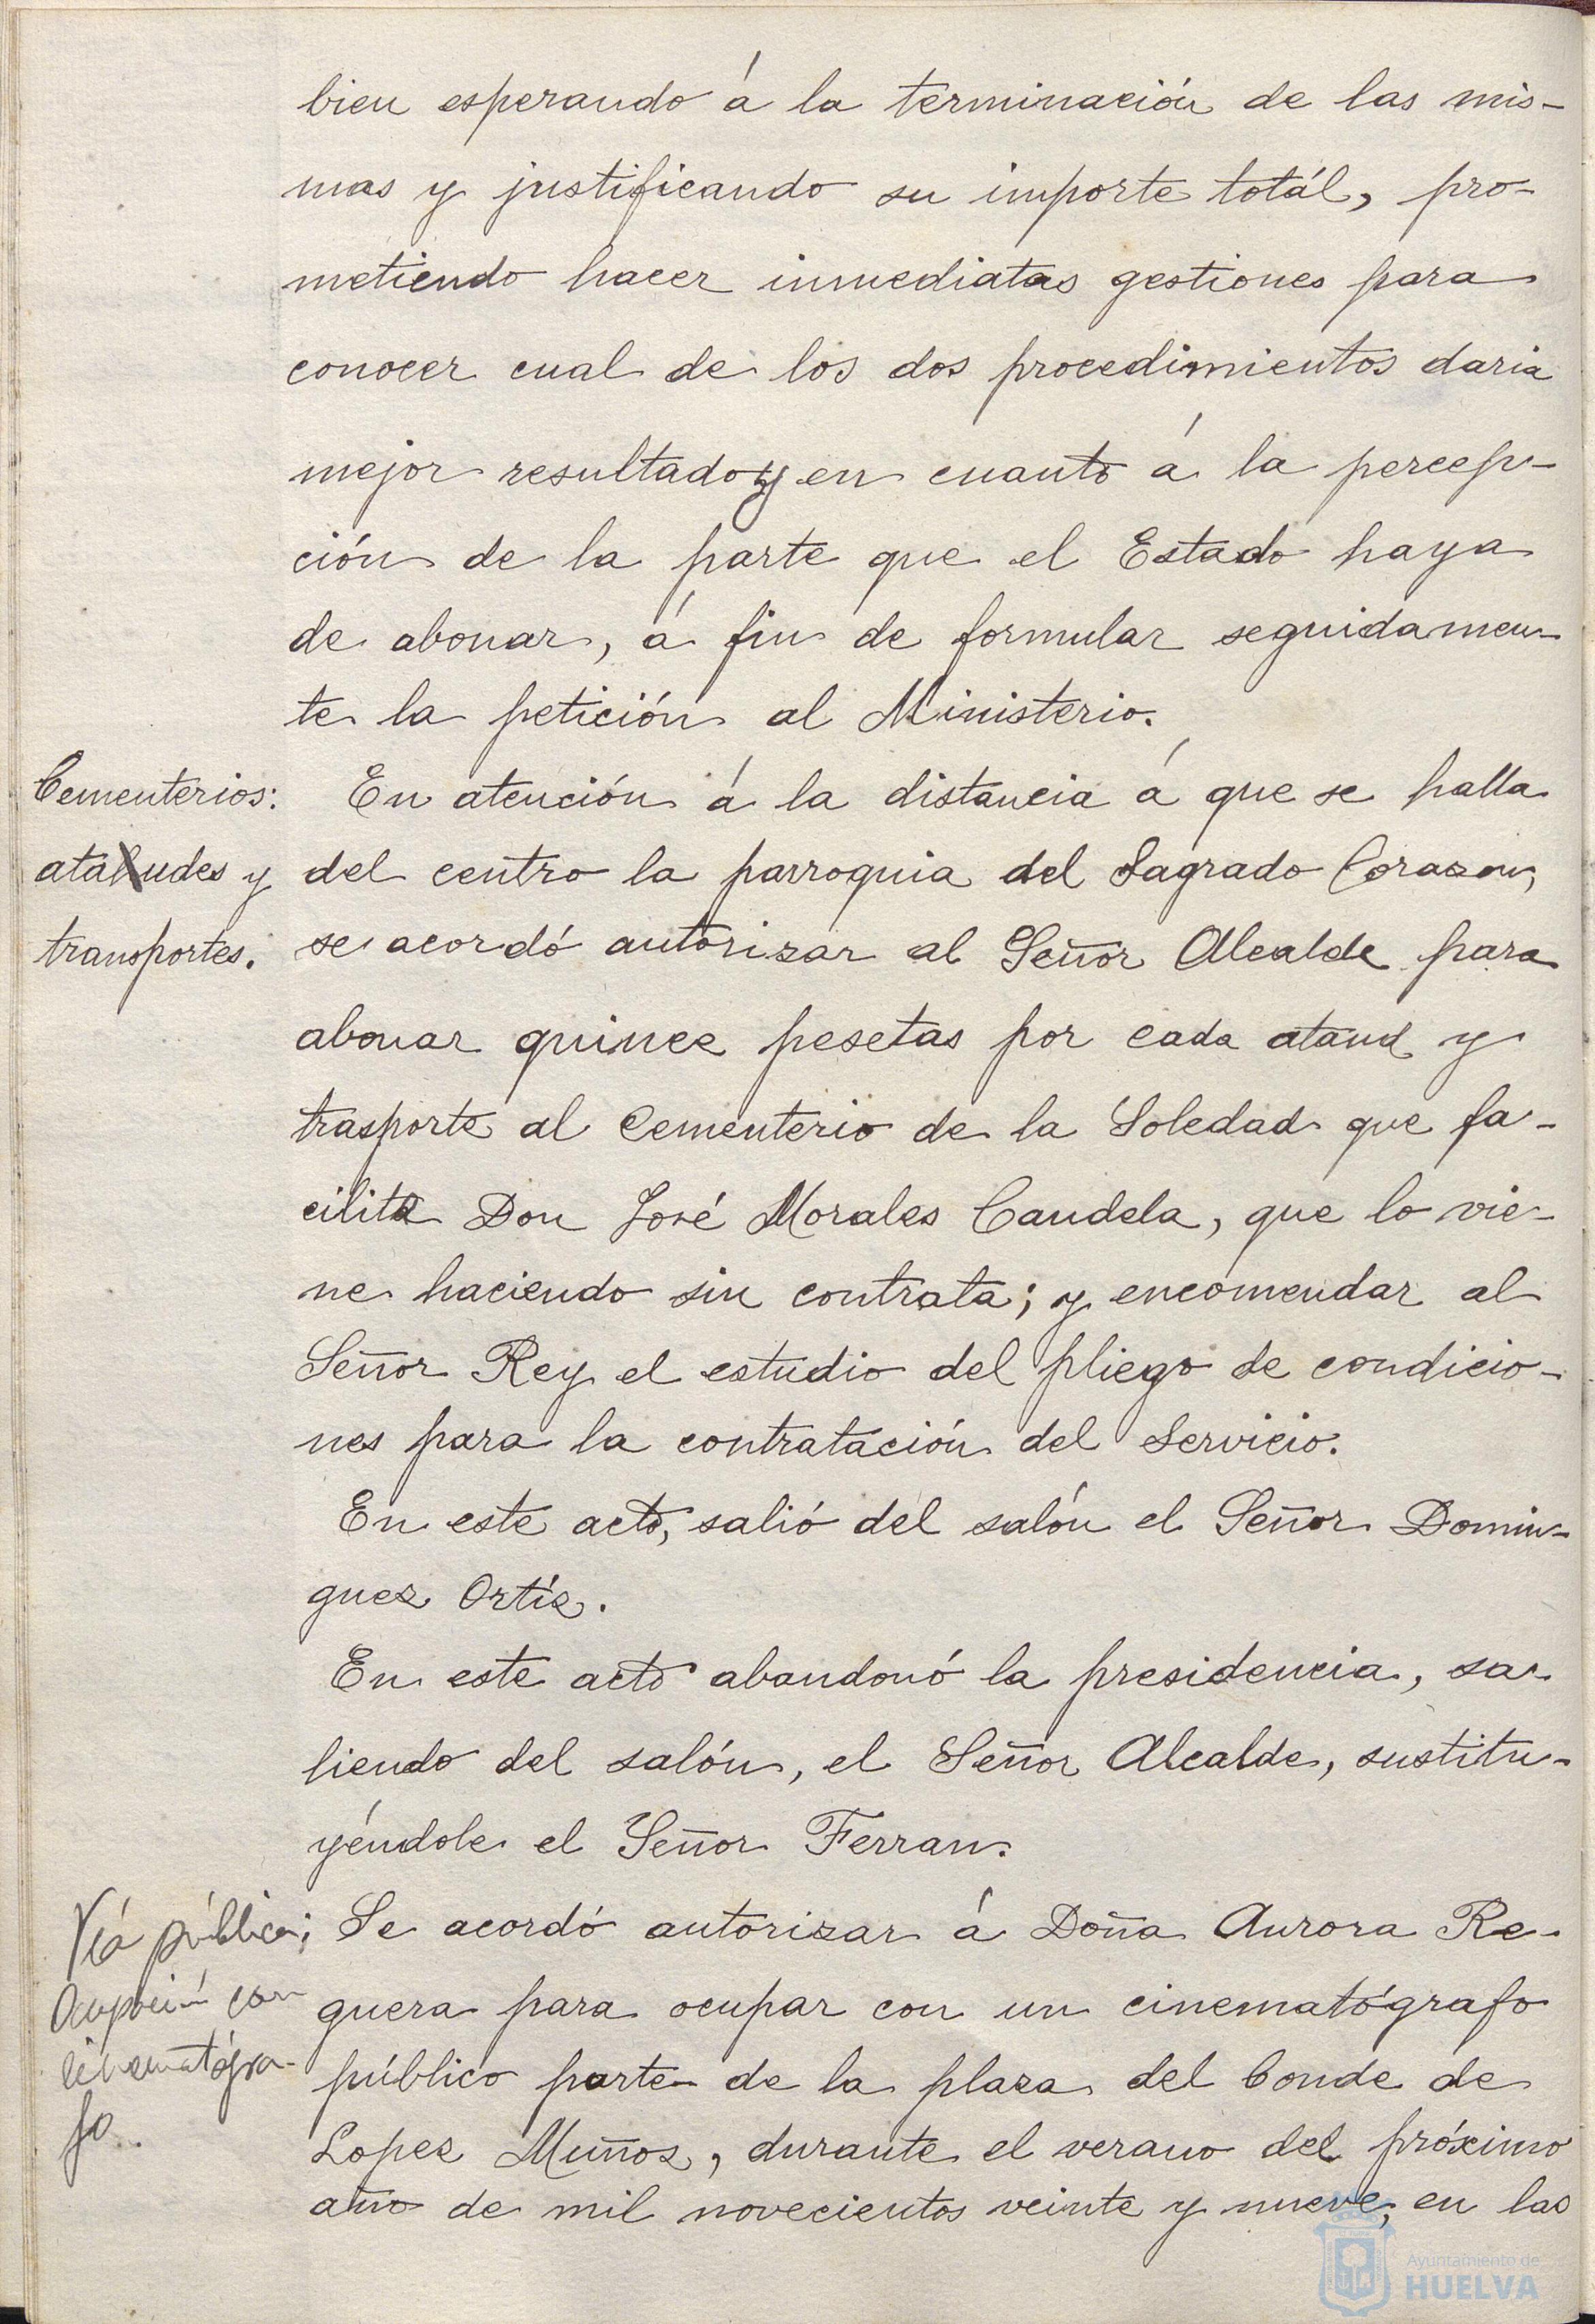 bien esperando á la terminación de las mis-
mas y justificando su importe totál, pro-
metiendo hacer inmediatas gestiones para
conocer cual de los dos procedimientos daria
mejor resultado y en cuanto á la percep-
ción de la parte que el Estado haya
de abonar, á fin de formular seguidamen-
te la petición al Ministerio.
Cementerios:
ataludes y
transportes.
En atención á la distancia á que se halla
del centro la parroquia del Sagrado Corazon,
se acordó autorizar al Señor Alcalde para
abonar quince pesetas por cada ataud y
trasporte al Cementerio de la Soledad que fa-
cilita Don José Morales Candela, que lo vie-
ne haciendo sin contrata; y encomendar al
Señor Rey el estudio del pliego de condicio-
nes para la contratación del Servicio.
En este acto, salió del salón el Señor Domin-
guez Ortíz.
En este acto abandonó la presidencia, sa-
liendo del salón, el Señor Alcalde, sustitu-
yéndole el Señor Ferran.
Vía pública;
Ocupación con
cinematógra-
fo.
Se acordó autorizar á Doña Aurora Re-
guera para ocupar con un cinematógrafo
público parte de la plaza del Conde de
Lopez Muñoz, durante el verano del próximo
año de mil novecientos veinte y nueve, en las
Ayuntamiento de
HUELVA